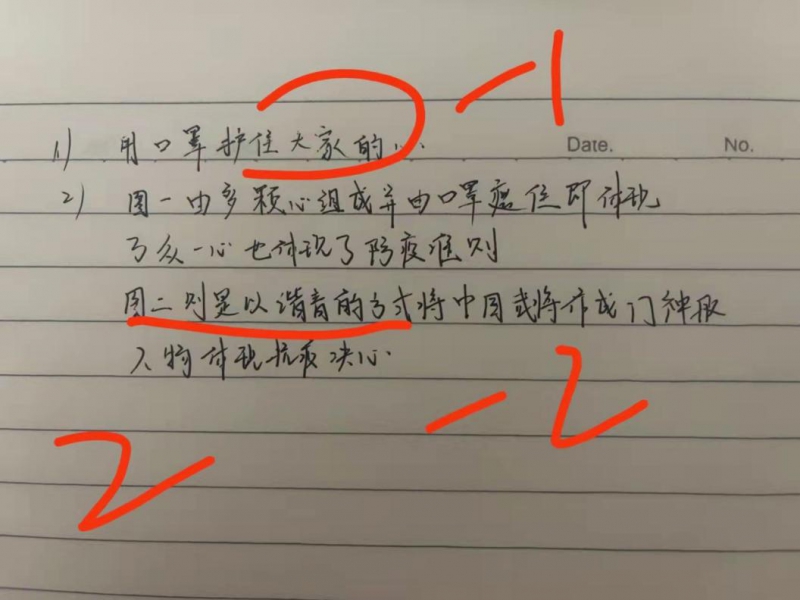 -1
1) 用口罩护住大家的心.
Date. No.
2) 图一由多颗心组成并由口罩住即体现
了众一心也体现了防疫准则
图二则是以谐音的方式将中国武将作成门神
人物体现抗疫决心.
-2
2